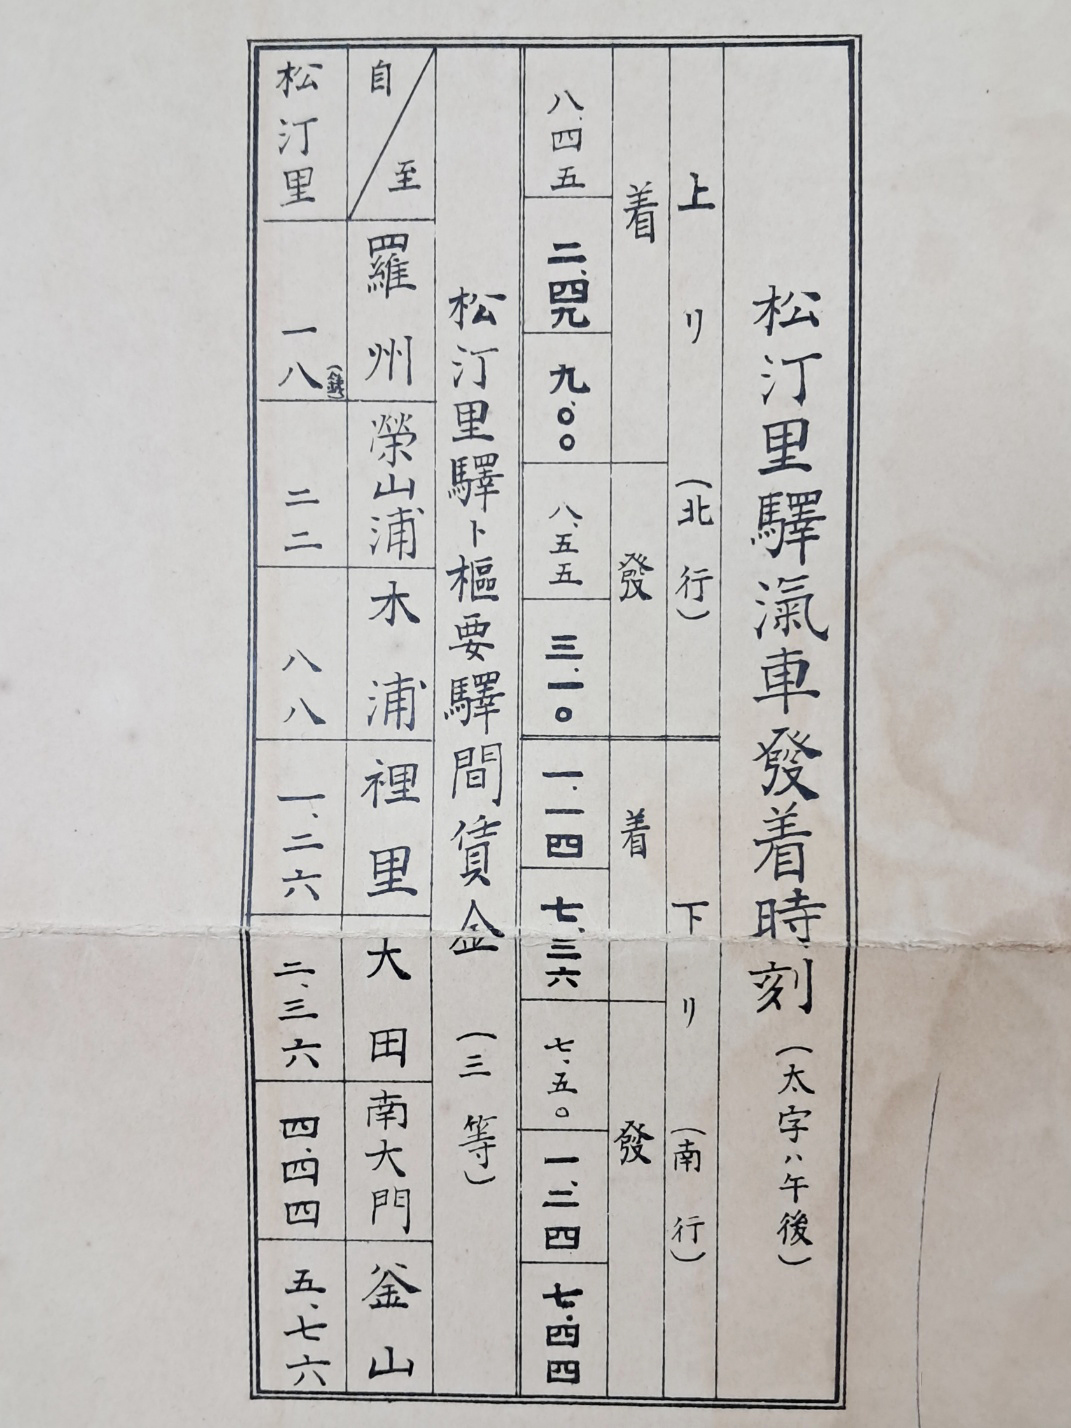 松汀里驛氣車發着時刻(太字ハ午後)
上リ(北行)
下リ(南行)
着
發
着
發
八、四五
二、四九
九、〇〇
八、五五
三、一〇
一、一四
七、三六
七、五〇
一、二四
七、四四
松汀里驛ト樞要驛間賃金(三等)
自
至
羅州
榮山浦
木浦
裡里
大田
南大門
釜山
松汀里
一八(錢)
二二
八八
一、二六
二、三六
四、四四
五、七六